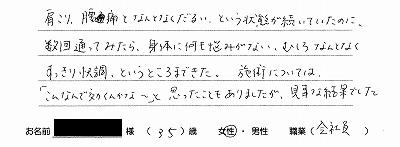 肩こり、腰痛となんとなくだるい、という状態が続いていたのに、
数回通ってみたら、身体に何も悩みがない、むしろなんとなく
すっきり快調、というところまできた。 施術については、
「こんなんで効くんかな〜」と思ったこともありましたが、見事な結果でした
お名前 様 (35)歳 女性・男性 職業(会社員)